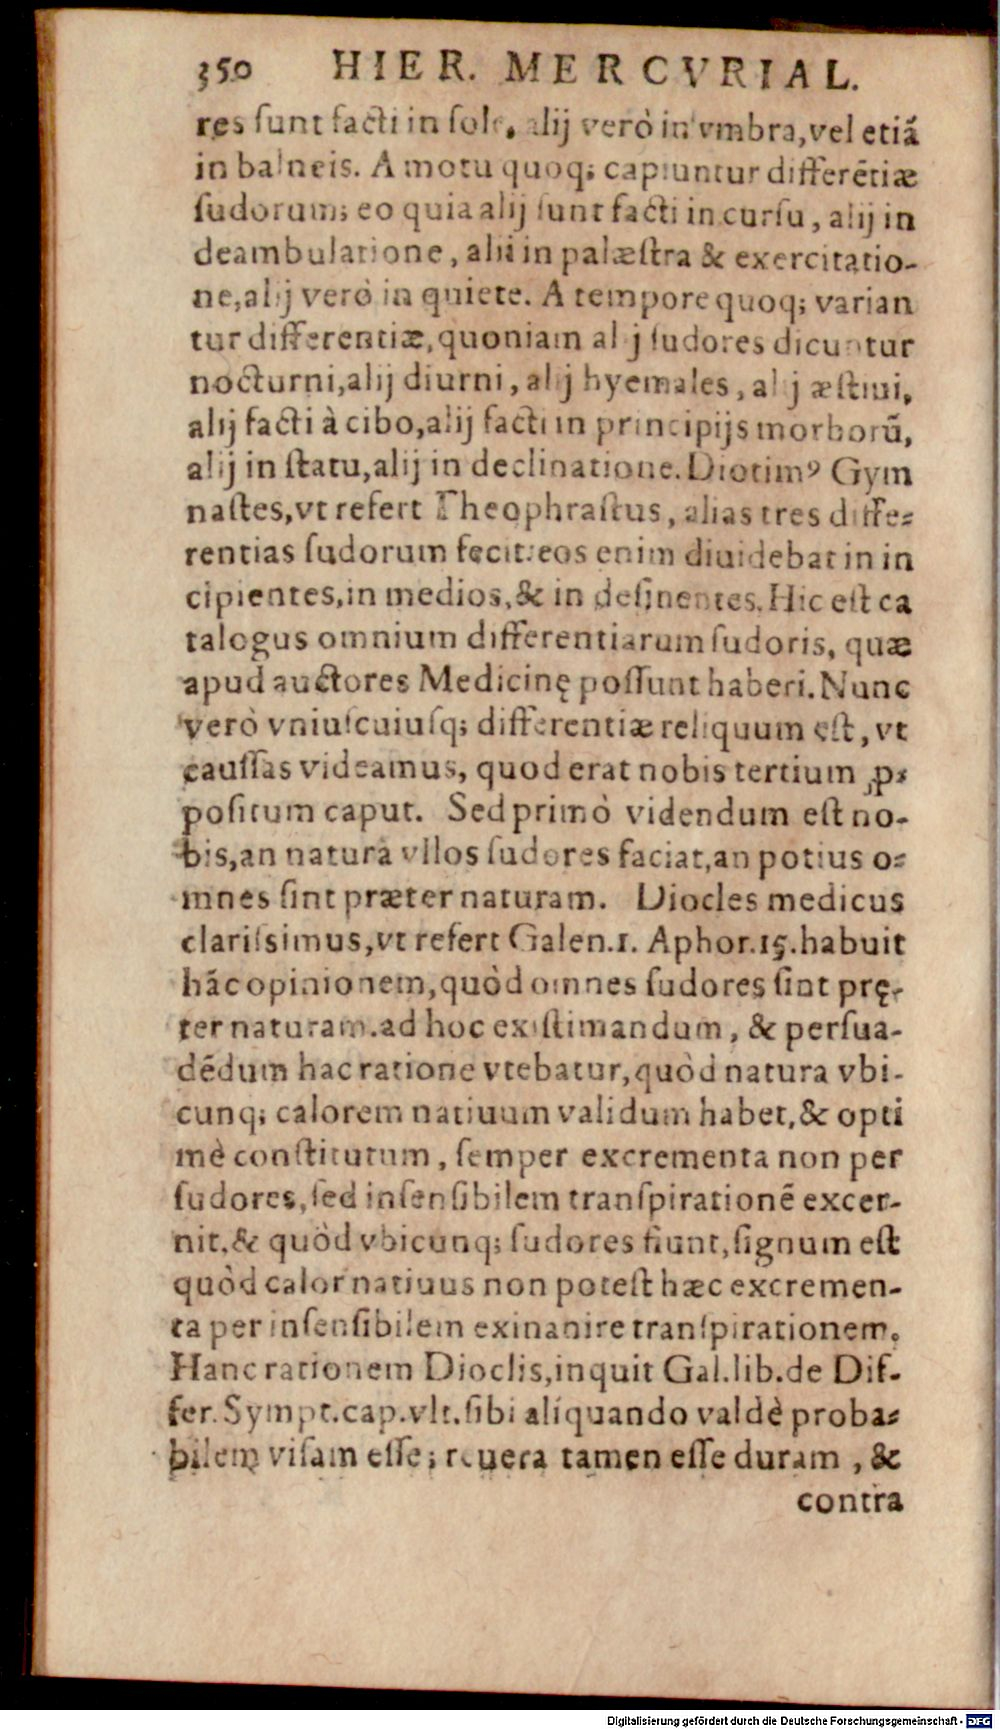 350 HIER. MERCVRIAL.
res ſunt facti in ſole, alij verò in vmbra, vel etiā
in balneis. A motu quoq; capiuntur differētiæ
ſudorum; eo quia alij ſunt facti in curſu, alij in
deambulatione, alij in palæſtra & exercitatio-
ne, alij verò in quiete. A tempore quoq; varian
tur differentiæ, quoniam alij ſudores dicuntur
nocturni, alij diurni, alij hyemales, alij æſtiui,
alij facti à cibo, alij facti in principijs morborū,
alij in ſtatu, alij in declinatione. Diotimꝰ Gym
naſtes, vt refert Theophraſtus, alias tres diffe-
rentias ſudorum fecit: eos enim diuidebat in in
cipientes, in medios, & in deſinentes. Hic eſt ca
talogus omnium differentiarum ſudoris, quæ
apud auctores Medicinę poſſunt haberi. Nunc
verò vniuſcuiuſq; differentiæ reliquum eſt, vt
cauſſas videamus, quod erat nobis tertium ꝓ-
poſitum caput. Sed primò videndum eſt no-
bis, an natura vllos ſudores faciat, an potius o-
mnes ſint præter naturam. Diocles medicus
clariſsimus, vt refert Galen. 1. Aphor. 15. habuit
hāc opinionem, quòd omnes ſudores ſint prę-
ter naturam. ad hoc exiſtimandum, & perſua-
dēdum hac ratione vtebatur, quòd natura vbi-
cunq; calorem natiuum validum habet, & opti
mè conſtitutum, ſemper excrementa non per
ſudores, ſed inſenſibilem tranſpirationē excer-
nit, & quòd vbicunq; ſudores fiunt, ſignum eſt
quòd calor natiuus non poteſt hæc excremen-
ta per inſenſibilem exinanire tranſpirationem.
Hanc rationem Dioclis, inquit Gal. lib. de Dif-
fer. Sympt. cap. vlt. ſibi aliquando valdè proba-
bilem viſam eſſe; reuera tamen eſſe duram, &
contra
Digitalisierung gefördert durch die Deutsche Forschungsgemeinschaft - DFG